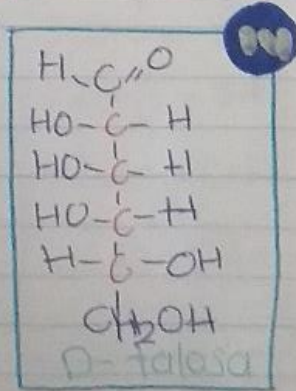 H C O
HO-C-H
HO-C-H
HO-C-H
H-C-OH
CH₂OH
D-talosa